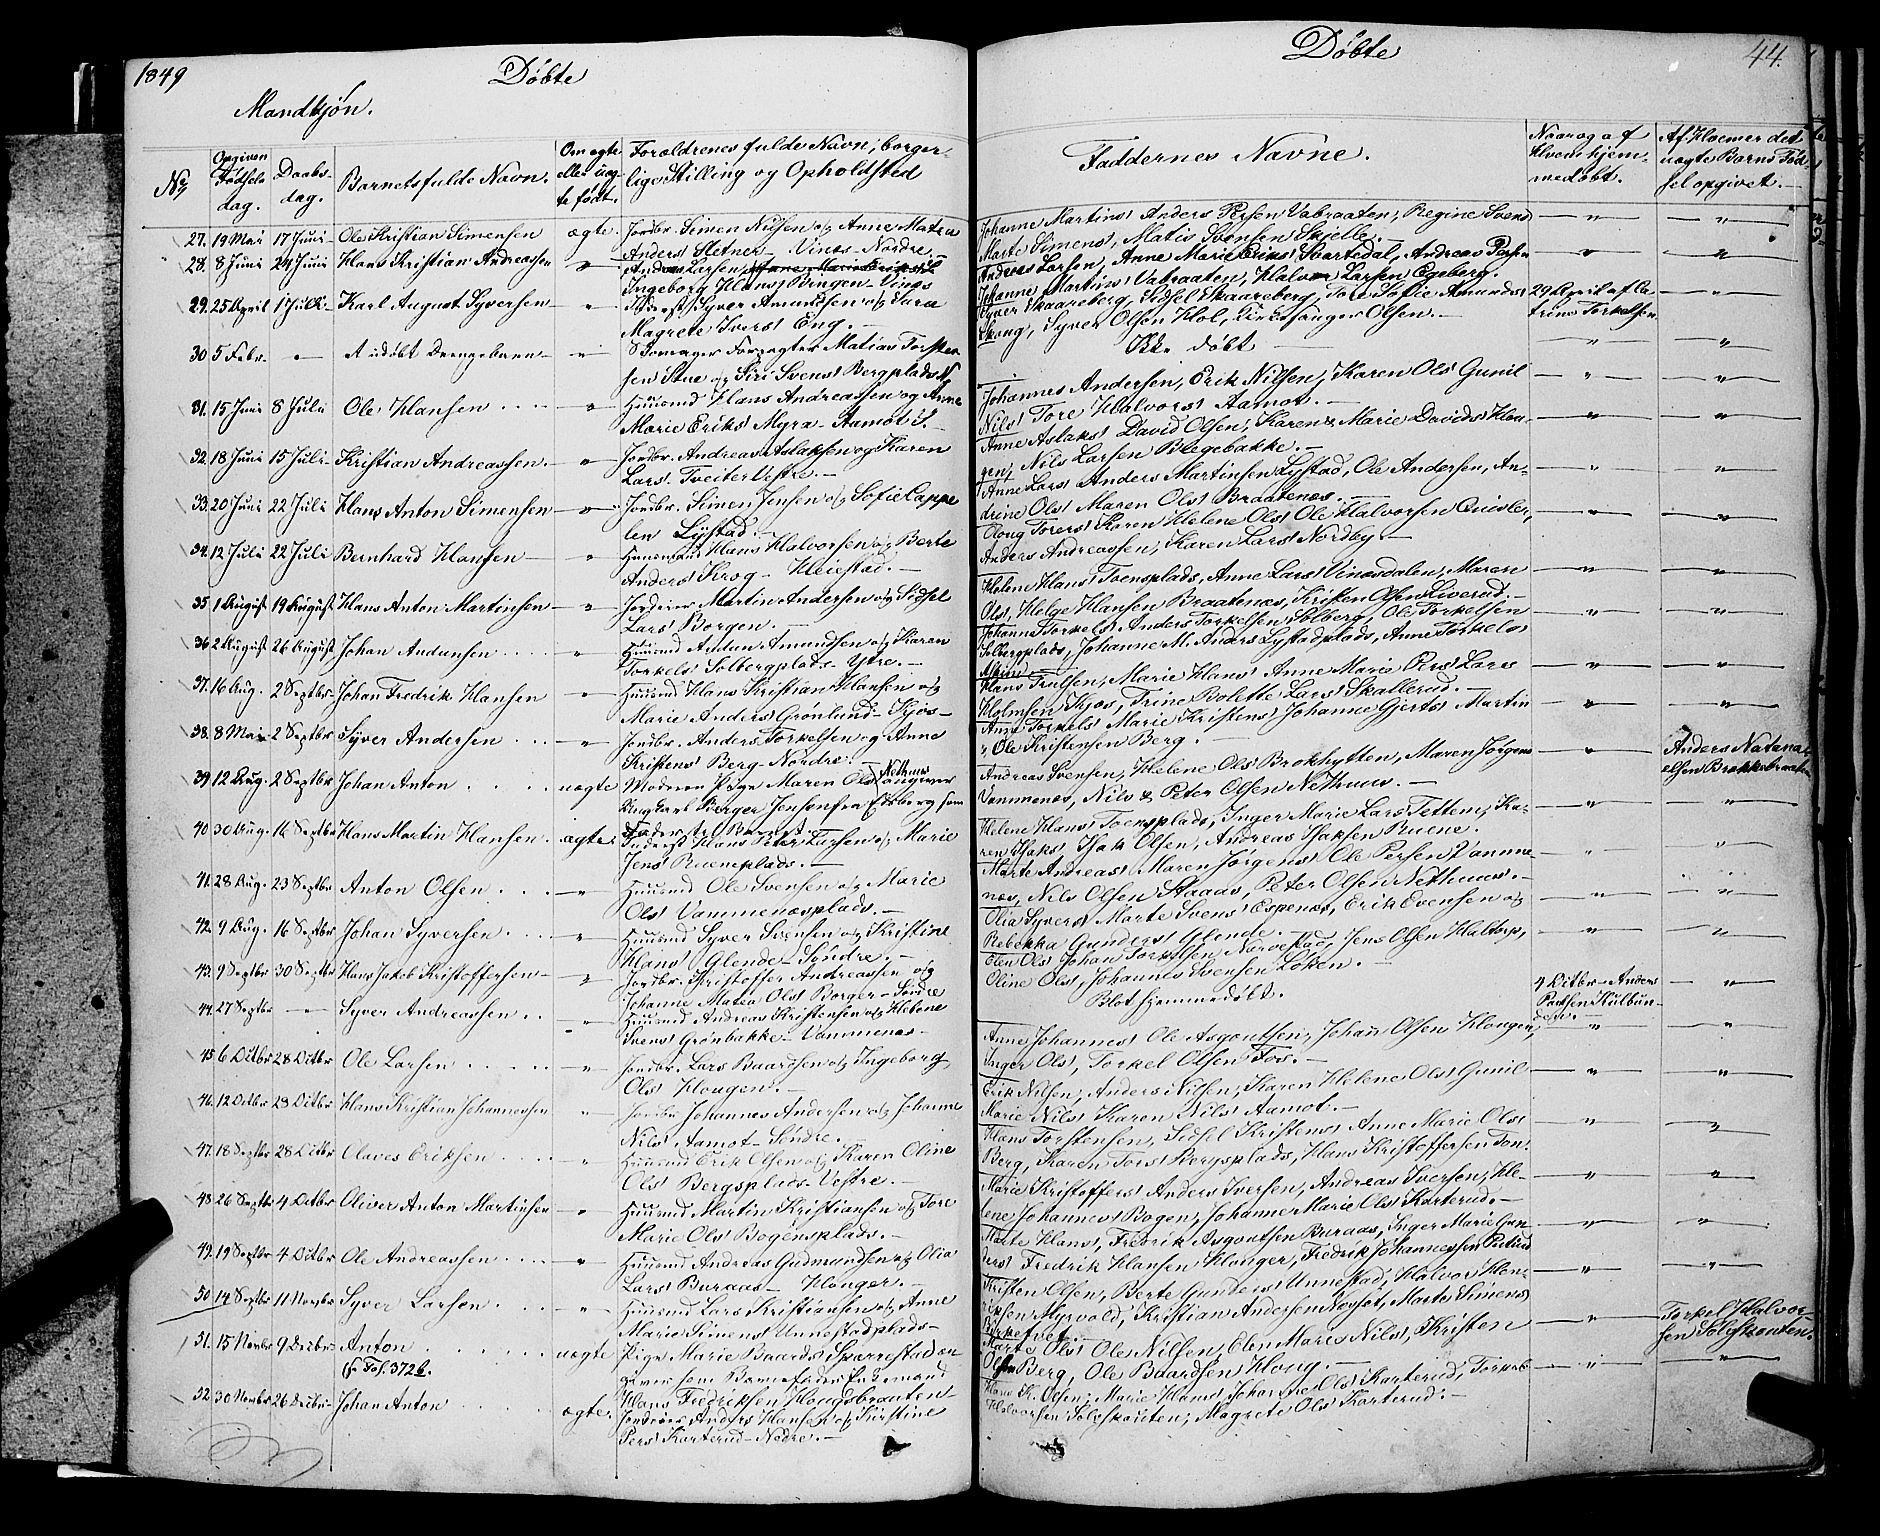 1849
Døbte
Mandkjøn.
No
Opgiven Fødsels dag.
Daabs dag.
Barnets fulde Navn.
Om ægte eller uægte født.
Forældrenes fulde Navn, borgerlige Stilling og Opholdsted
27. 19 Mai 17 Juni Ole Kristian Simensen ægte. Jordbr. Simen Nilsen og Anne Matea
Anders Sletner Vines Nordre
28. 8 Juni 24 Juni Hans Kristian Andreassen " Andreas Larsen
Ingeborg Hans Bingen Vines
29. 25 April 1 Juli Karl August Syversen " Syver Amundsen og Sara
Magrete Ivers Eng.
30 5 Febr. " A udøbt Drengebarn " Skomager Forpagter Matias Torsten
sen Stue og Siri Svens Bergplads N
31. 15 Juni 8 Juli Ole Hansen " Huusmd Hans Andreassen og Anne
Marie Eriks Myra Aamot S.
32. 18 Juni 15 Juli Kristian Andreassen. " Jordbr. Andreas Aslaksen og Karen
Lars Tveiter Vestre.
33. 20 Juni 22 Juli Hans Anton Simensen " Jordbr. Simen Jensen og Sofie Cappe
len Lystad.
34. 12 Juli 22 Juli Bernhard Hansen " Huusmand Hans Halvorsen og Berte
Anders Krog Heiestad.
35 1 August 19 August Hans Anton Martinsen " Jordeier Martin Andersen og Sidsel
Lars Borgen.
36 2 August 26 August Johan Andunsen " Huusmd Andun Amundsen og Karen
Torkels Solbergplads Ytre.
37. 16 Aug. 2 Septbr Johan Fredrik Hansen " Huusmd Hans Kristian Hansen og
Marie Anders Grønlund Kjos
38. 8 Mai 2 Septbr Syver Andersen " Jordbr. Anders Torkelsen og Anne
Kristens Berg Nordre.
39 12 Aug. 2 Septbr Johan Anton uægte Moderen Pige Maren Ols Nethuus angiver
Ungkarl Jensen fra Eidsberg som
Fader til Barnet.
40 30 Aug. 16 Septbr Hans Martin Hansen. ægte. Inderst Hans Peter Larsen og Marie
Jens Rueneplads.
41. 28 Aug. 23 Septbr Anton Olsen " Huusmd Ole Svensen og Marie
Ols Vammenæsplads.
42. 9 Aug. 16 Septbr Johan Syversen " Huusmd Syver Svensen og Kristine
Hans Glende Søndre.
43. 9 Septbr 30 Septbr Hans Jakob Kristoffersen " Jordbr. Kristoffer Andreassen og
Johanne Matea Ols Borger Søndre
44. 27 Septbr " Syver Andreassen " Huusmd Andreas Kristensen og Helene
Svens Grønbakke Vammenæs
45. 6 Octbr 28 Octbr Ole Larsen " Jordbr. Lars Baardsen og Ingeborg
Ols Hougen.
46. 12 Octbr 28 Octbr Hans Kristian Johannessen " Jordbr Johannes Andersen og Johanne
Nils Aamot Søndre.
47. 18 Septbr 28 Octbr Olaves Eriksen " Huusmd Erik Olsen og Karen Oline
Ols Bergsplads Vestre.
48. 26 Septbr 4 Octbr Oliver Anton Martinsen " Huusmd Martin Kristiansen og Tore
Marie Ols Bogensplads.
49. 19 Septbr 4 Octbr Ole Andreassen " Huusmd Andreas Gudmundsen og Olia
Lars Buraas Honger.
50 14 Septbr 11 Novbr Syver Larsen " Huusmd Lars Kristiansen og Anne
Marie Simens Unnestadplads
51. 15 Novbr 9 Decbr Anton uægte Pige Marie Baards Sparrestad an
(s. Fol. 372 b.) giver som Barnefader Enkemand
Hans Fredriksen Hougsbraaten
52. 30 Novbr 26 Decbr Johan Anton ægte. Jordeier Anders Hansen og Kirstine
Pers Karterud Nedre.
Døbte
44.
Faddernes Navne.
Naar og af Hvem hjemmedøbt.
Af Hvem er det uægte Barns Fødsel opgivet.
Johanne Martins Anders Persen Vabraaten, Regine Svend
Marte Simens, Matis Svensen Skjelle.
Andreas Larsen, Anne Marie Eriks Svartedal, Andreas Persen
Johanne Martins Vabraaten, Halvor Larsen Egeberg.
Syver Skaareberg, Sidsel Skaareberg, Tore Sofie Amunds 29 April af Ca-
Skoug, Syver Olsen Hol, Kirkesanger Olsen. trine Torkelsen
Ikke døbt
Johannes Andersen, Erik Nilsen, Karen Ols Gunil
Nils Tore Halvors Aamot.
Anne Aslaks David Olsen, Karen & Marie Davids Hou
gen, Nils Larsen Blegebakke.
Anne Lars Anders Martinsen Lystad, Ole Andersen, An-
drine Ols Maren Ols Braatenæs.
Oloug Torers Karen Helene Ols Ole Halvorsen Quisler,
Anders Andreassen, Karen Lars Nordby
Helene Hans Toensplads, Anne Lars Vinesdalen, Maren
Ols, Helge Hansen Braatenæs, Kristen Olsen Liverud.
Johanne Torkels Anders Torkelsen Solberg, Ole Torkelsen
Solbergplads, Johanne M. Anders Lystadplads, Anne Torkels
Askim
Hans Trulsen, Marie Hans Anne Marie Pers Lars
Holmsen Kjos, Trine Bolette Lars Skallerud.
Anne Torkels Marie Kristens Johanne Gjerts Martin
" Ole Kristensen Berg.
Andreas Svensen, Helene Ols Brokhytten, Maren Jørgens Anders Natana-
Vammenæs, Nils & Peter Olsen Nethuus. elsen Brokkebraaten
Helene Hans Toensplads, Inger Marie Lars Tettem, Ka-
ren Isaks Isak Olsen, Andreas Isaksen Ruene.
Marte Andreas Maren Jørgens Ole Persen Vamme
næs, Nils Olsen Staaas, Peter Olsen Nethuus.
Olia Syvers Marte Svens Espenæs, Erik Evensen og
Rebekka Gunders Glende.
Elen Ols Johan Torkilsen Narvestad, Jens Olsen Haltorp,
Oline Ols, Johannes Svensen Løken.
Blot hjemmedøbt. 4 Octbr Anders
Paulsen Kulbun-
den.
Anne Johannes Ole Asgoutsen, Johan Olsen Hougen,
Inger Ols, Torkel Olsen Fos.
Erik Nilsen, Anders Nilsen, Karen Helene Ols Gunil
Marie Nils Karen Nils Aamot.
Hans Torstensen, Sidsel Kristens Anne Marie Ols
Berg, Karen Tors Bergsplads, Hans Kristoffersen Ton.
Marie Kristoffers Anders Iversen, Andreas Iversen, He-
lene Johannes Bogen, Johanne Marie Ols Karterud.
Marte Hans, Fredrik Asgoutsen Buraas, Inger Marie Gun
ders Fredrik Hansen Honger, Fredrik Johannessen
Kristen Olsen, Berte Gunders Unnestad, Halvor Hen-
riksen Myrvold, Kristian Andersen Næset, Marte Simens
Birketvet.
Marte Ols Ole Nilsen, Elen Marie Nils, Kristen Torkel Halvor-
Olsen Berg, Ole Baardsen Houg. sen Solyskouten.
Hans K. Olsen, Marie Hans Johanne Ols Karterud, Torkel
Halvorsen Solyskouten, Magrete Ols Karterud.